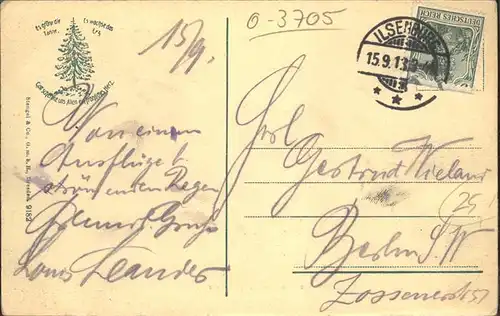 Es grüne die Tanne,
Es wachse das Erz
Gott schenke uns allen ein fröhliches Herz.
Stengel & Co., G.m.b.H., Dresden 9182
15/9.
0-3705
ILSENBURG
15.9.13
DEUTSCHES REICH
Von einem
Ausfluge b.
strömenden Regen
Gruß
Louis Leander
Frl.
Gertrud Wieland
Berlin SW
Zossenerstr 51
(25)